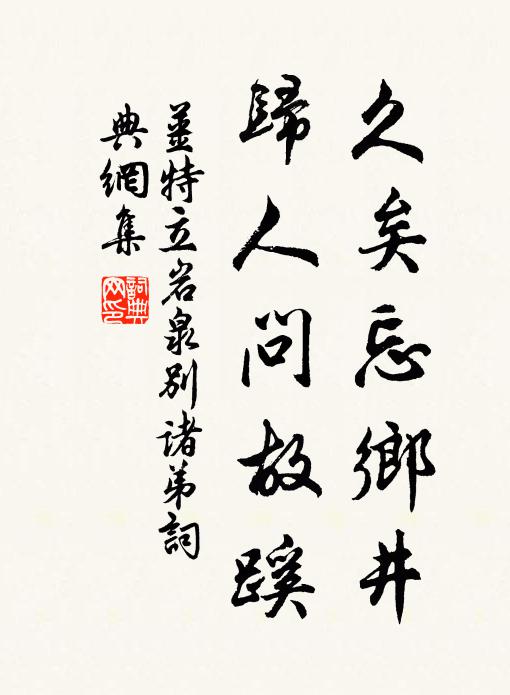 久矣忘鄉井
歸人問故蹊
姜特立岩泉別諸弟詞
典網集
詞典網印